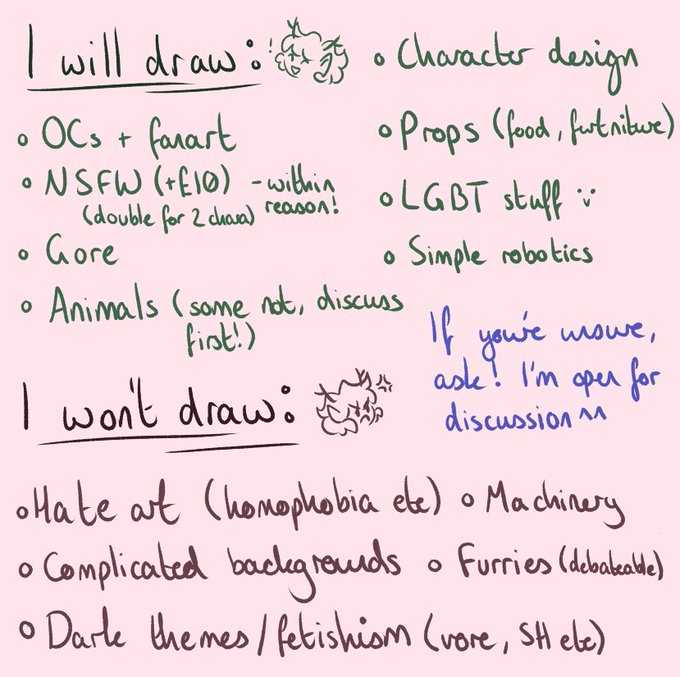 I will draw:
• OCs + fanart
• NSFW (+£10) - within reason!
(double for 2 chara)
• Gore
• Animals (some not, discuss
first!)
• Character design
• Props (food, furtniture)
• LGBT stuff :)
• Simple robotics
If you're unsure,
ask! I'm open for
discussion ^^
I won't draw:
• Hate art (homophobia etc) • Machinery
• Complicated backgrounds • Furries (debateable)
• Dark themes/fetishism (vore, SH etc)